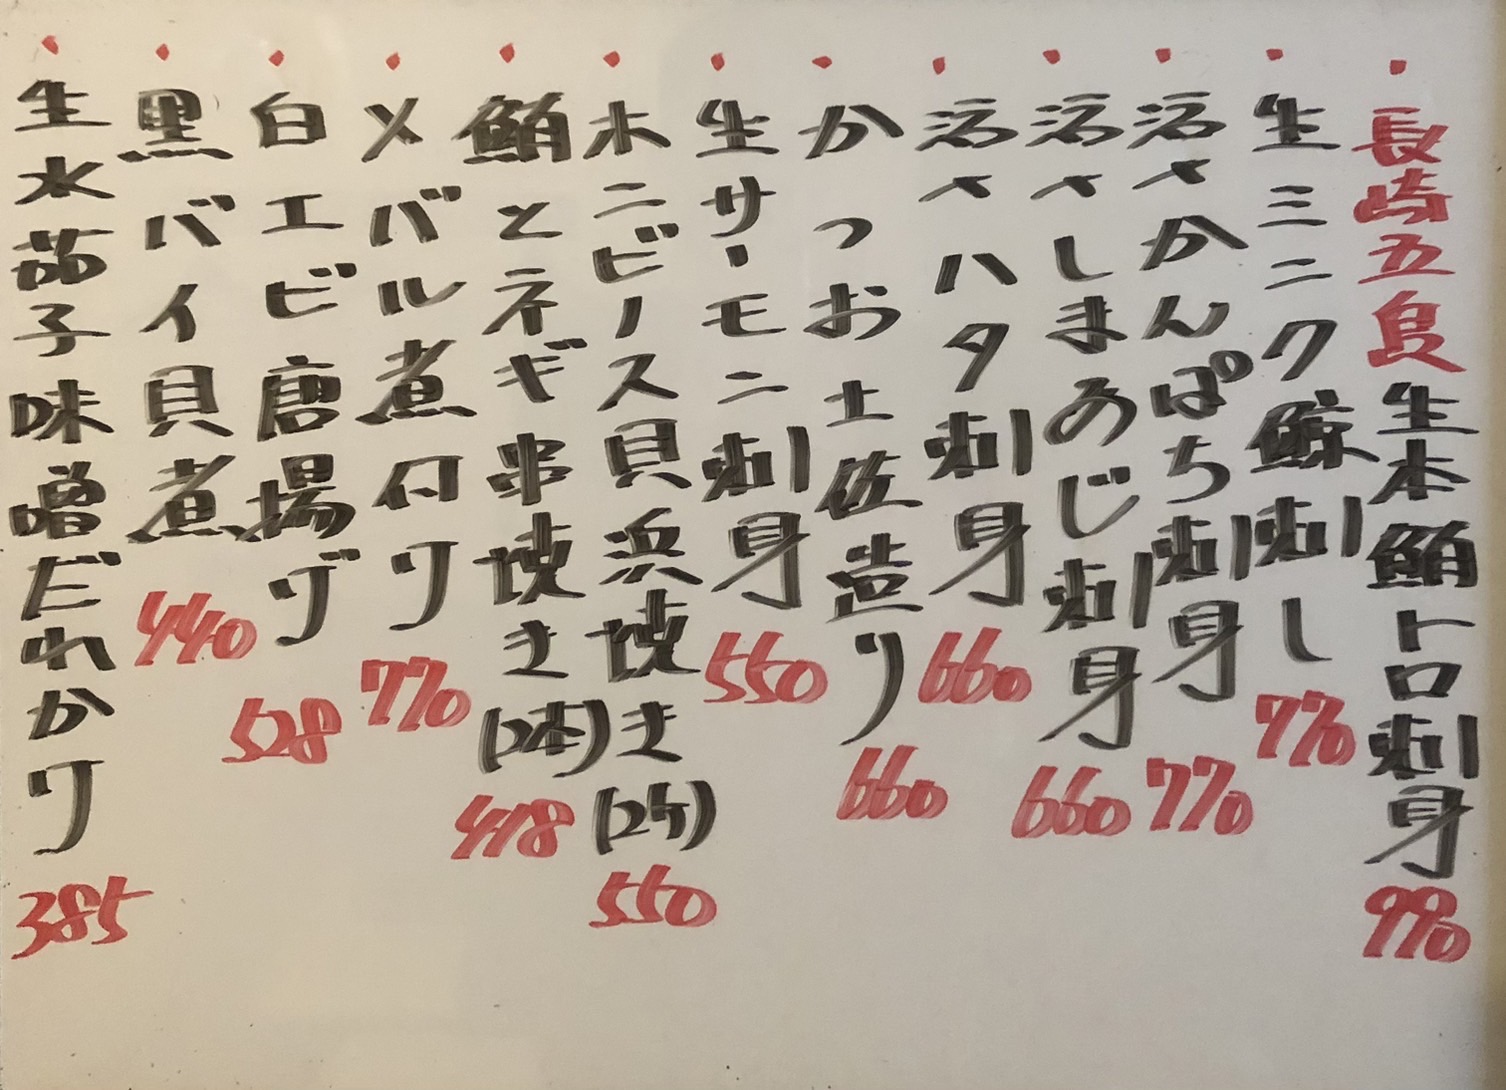 長崎五島生本鮪トロ刺身 990
生ミンク鯨刺し 770
活〆かんぱち刺身 770
活〆しまあじ刺身 660
活〆ハタ刺身 660
かつお土佐造り 660
生サーモン刺身 550
ホンビノス貝浜焼き(2ケ) 550
鮪とネギ串焼き(2本) 418
メバル煮付け 770
白エビ唐揚げ 528
黒バイ貝煮 440
生水茄子味噌だれかけ 385